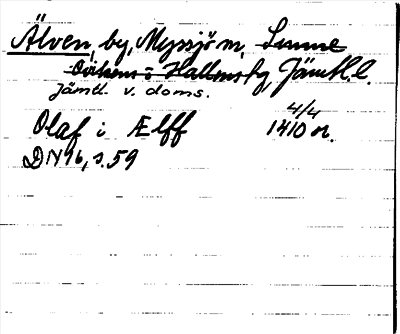 Älven, by, Myssjö sn, Sunne
Ovikens o Hallens tg, Jämtl. l.
Jämtl. v. doms.
Olaf i Ælff 4/4 1410 or.
DN 16, s. 59